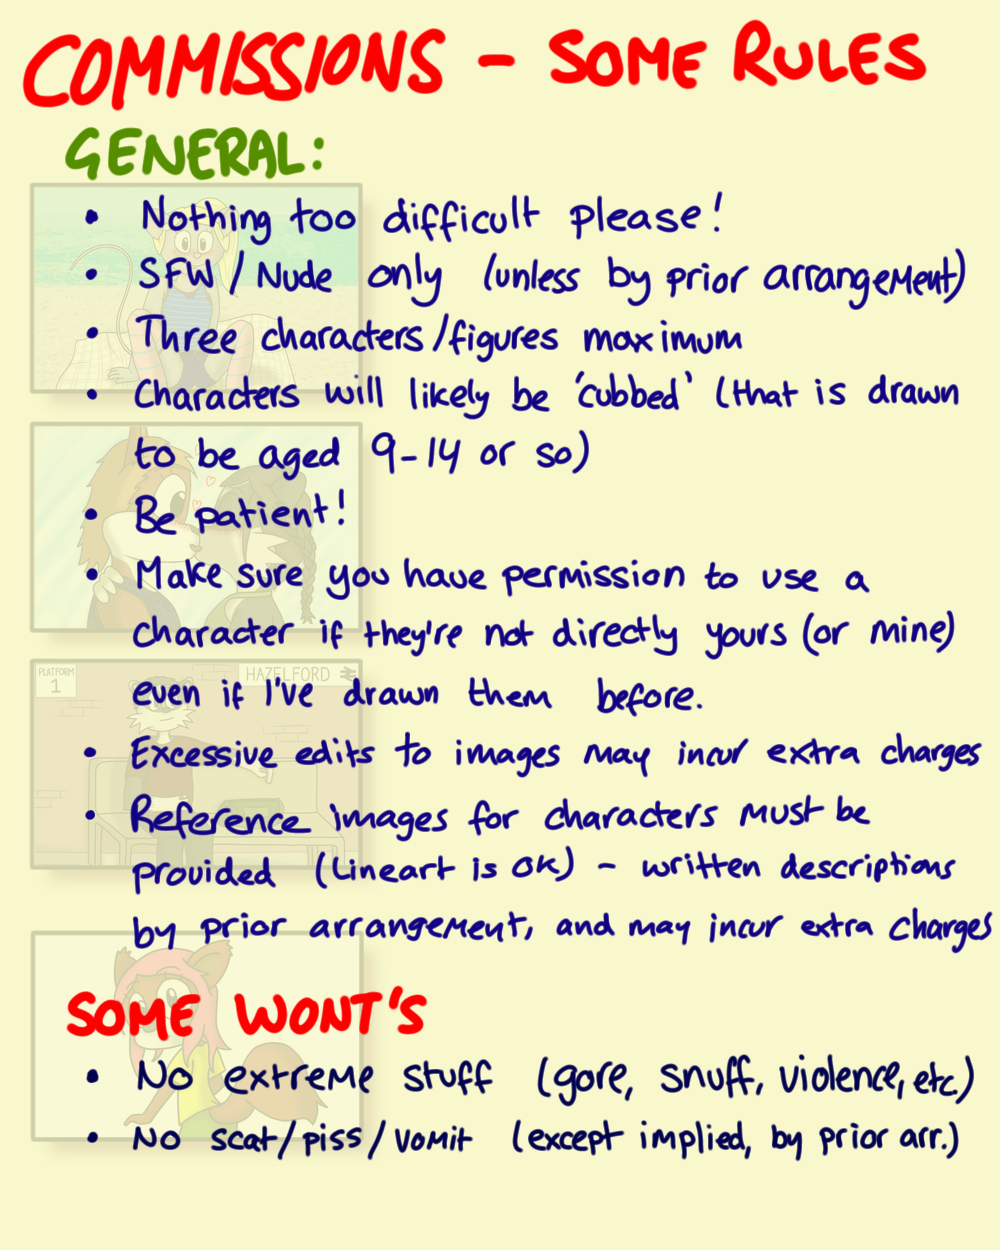 COMMISSIONS - SOME RULES
GENERAL:
• Nothing too difficult please!
• SFW / Nude only (unless by prior arrangement)
• Three characters/figures maximum
• Characters will likely be 'cubbed' (that is drawn
to be aged 9-14 or so)
• Be patient!
• Make sure you have permission to use a
character if they're not directly yours (or mine)
even if I've drawn them before.
PLATFORM
1
HAZELFORD
• Excessive edits to images may incur extra charges
• Reference images for characters must be
provided (Lineart is OK) - written descriptions
by prior arrangement, and may incur extra charges
SOME WONT'S
• No extreme stuff (gore, snuff, violence, etc)
• No scat/piss/vomit (except implied, by prior arr.)